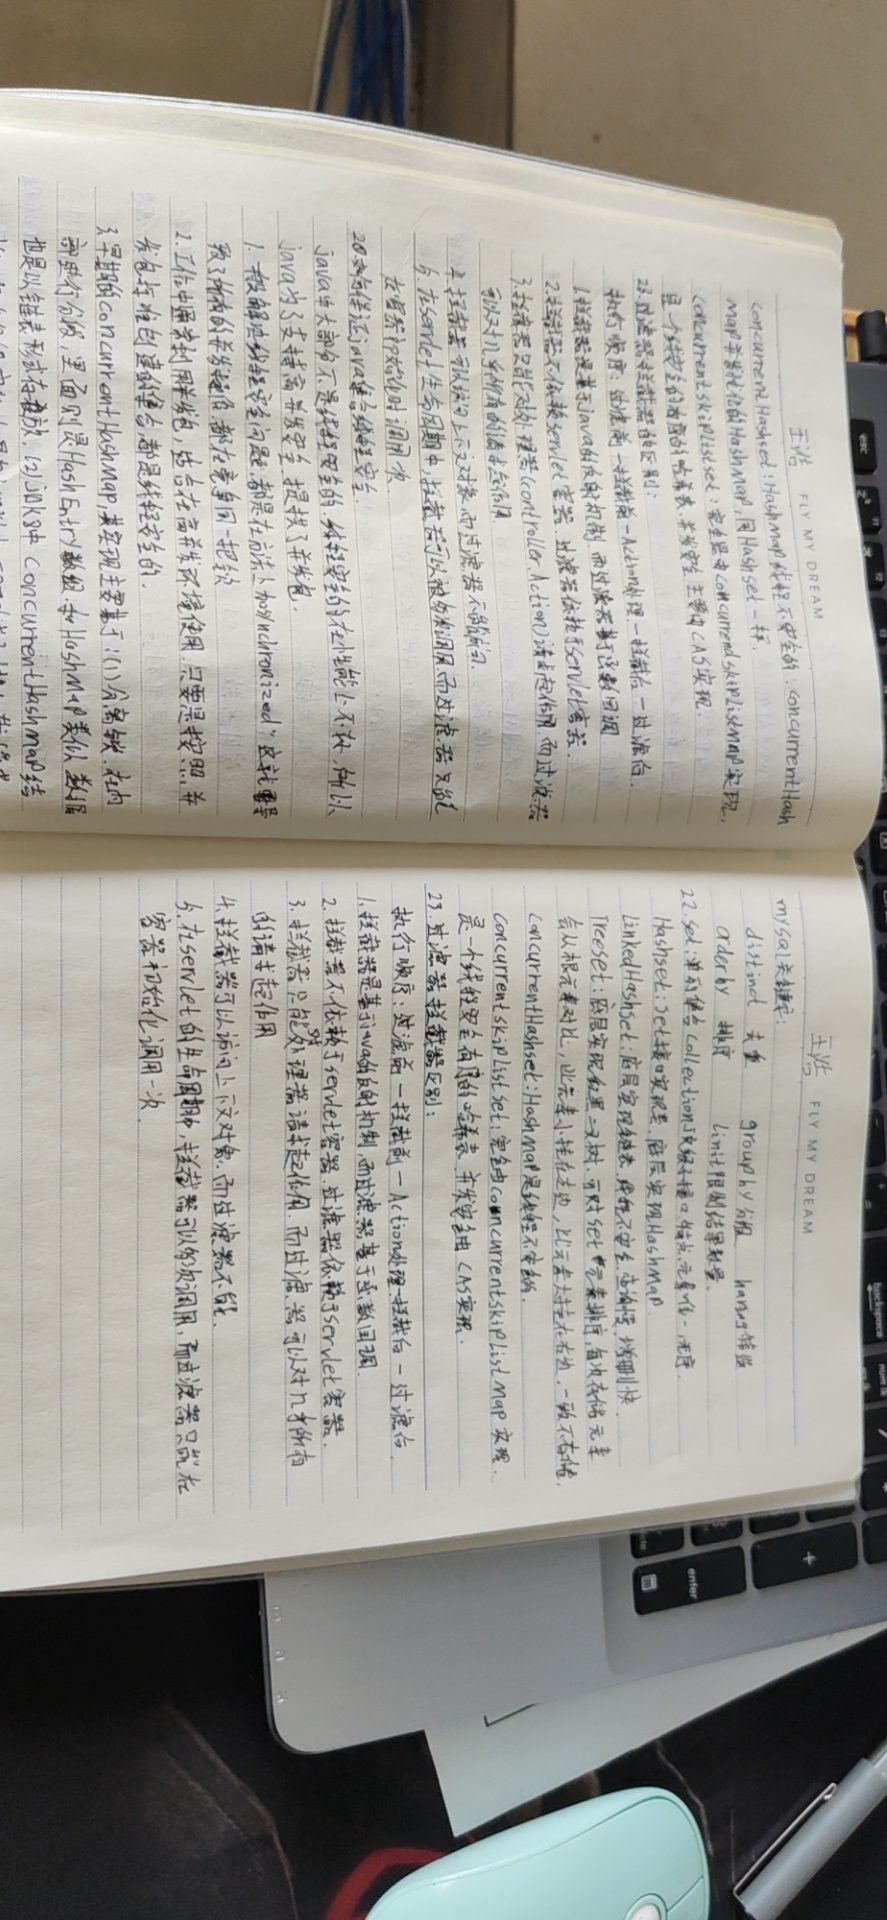 王浩 FLY MY DREAM
concurrentHashset:HashMap线程不安全的:concurrentHash
map并发优化的HashMap,同Hashset一样.
concurrentskiplistset:完全是由concurrendskiplistMap实现,
是一个线程安全的有序的哈希表,并发安全主要由CAS实现.
23.过滤器拦截器的区别:
执行顺序:过滤前一拦截前一Action处理一拦截后一过滤后.
1.拦截器是基于java的反射机制,而过滤器基于函数回调
2.拦截器不依赖servlet容器.过滤器依赖于servlet容器.
3.拦截器只能对处理器(controller.Action)请求起作用.而过滤器
可以对几乎所有的请求起作用
4.拦截器可以访问上下文对象,而过滤器不能访问.
5.在servlet生命周期中,拦截器可以被多次调用.而过滤器只能
在容器初始化时调用一次
28.如何保证java集合线程安全.
java中大部分不是线程安全的.线程安全的在性能上不太,所以
java为了支持高并发安全,提换了并发包.
1.一般解决线程安全问题,都是在方法上加synchronized"这就导
致了所有的并发操作,都在竞争同一把锁
2.工作中通常利用并发包,结合在高并发环境使用.只要是按照...并
发包标准创建的集合都是线程安全的.
3.早期的concurrentHashMap,其实现主要基于:(1)分离锁.在内
部进行分段,里面则是HashEntry数组,和HashMap类似 数据
也是以链表形式存放.(2)jdk8中 concurrentHashMap结
王浩 FLY MY DREAM
mysql关键字:
distinct 去重 group by 分组 having 筛选
order by 排序 limit限制结果数量.
22.set:单列集合collection顶级接口.特点,元素唯一,无序.
Hashset:set接口实现类.底层实现HashMap
LinkedHashset:底层实现链表.线程不安全.查询慢,增删快
Treeset:底层实现红黑二叉树.可对set中元素排序,每次存储元素
会从根元素对比,比元素小挂在左边,比元素大挂在右边,一致不存储.
concurrentHashset:HashMap是线程不安全的.
concurrentskiplistset:完全由concurrentskiplistMap实现.
是一个线程安全有序的哈希表.并发安全由CAS实现.
23.过滤器拦截器区别:
执行顺序:过滤前一拦截前一Action处理一拦截后一过滤后.
1.拦截器是基于java的反射机制.而过滤器基于函数回调.
2.拦截器不依赖于servlet容器.过滤器依赖于servlet容器.
3.拦截器只能对处理器请求起作用.而过滤器可以对几乎所有
的请求起作用
4.拦截器可以访问上下文对象.而过滤器不能.
5.在servlet的生命周期中,拦截器可以多次调用,而过滤器只能在
容器初始化调用一次.
esc
backspace
num lk
enter
+